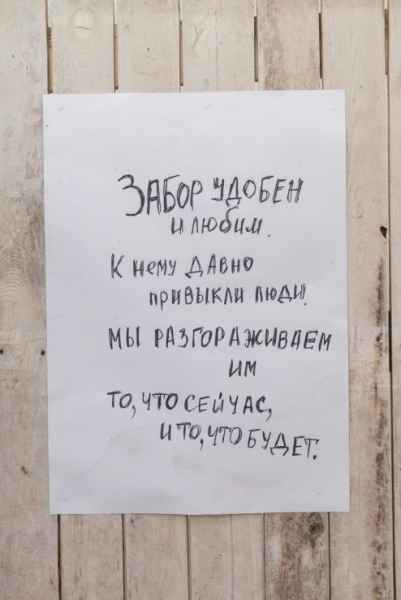 ЗАБОР УДОБЕН
И ЛЮБИМ.
К НЕМУ ДАВНО
ПРИВЫКЛИ ЛЮДИ.
МЫ РАЗГОРАЖИВАЕМ
ИМ
ТО, ЧТО СЕЙЧАС,
И ТО, ЧТО БУДЕТ.